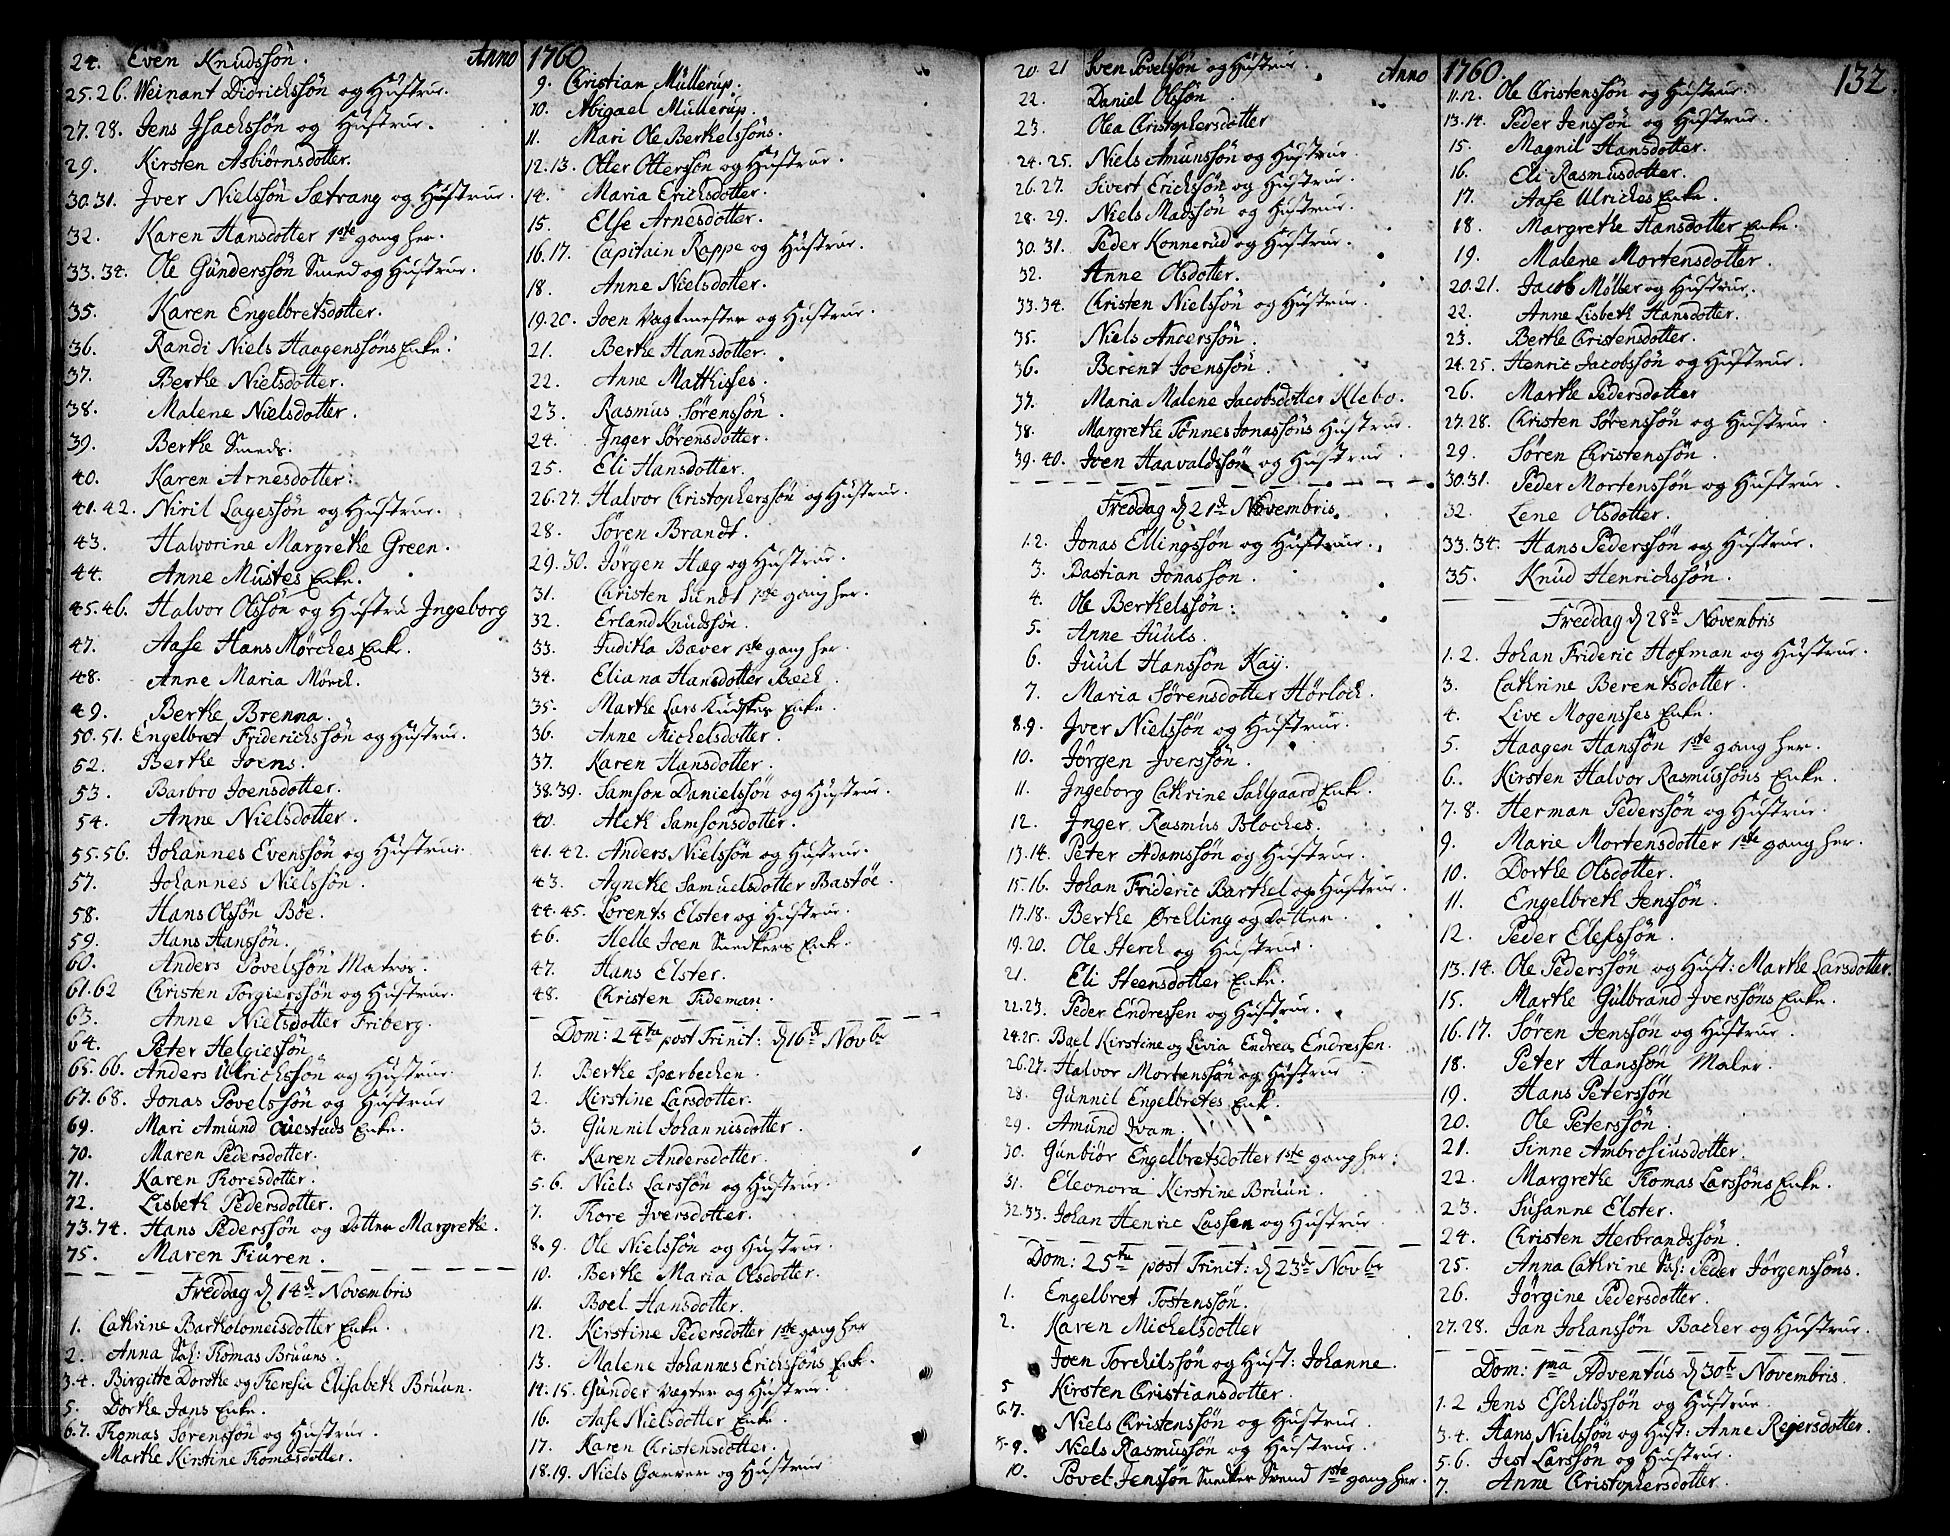 Anno 1760
24. Even Knudssön.
25.26. Weinant Didrichssön og Hustrue.
27.28. Jens Jsachssön og Hustrue.
29. Kirsten Asbiörnsdotter.
30.31. Jver Nielssön Sætrang og Hustrue.
32. Karen Hansdotter 1ste gang her.
33.34. Ole Gunderssön Smed og Hustrue.
35. Karen Engelbretsdotter.
36. Randi Niels Haagenssöns Enke.
37. Berthe Nielsdotter.
38. Malene Nielsdotter.
39. Berthe Smeds.
40. Karen Arnesdotter.
41.42. Niril Lagessön og Hustrue.
43. Halvorine Margrethe Green.
44. Anne Mustes Enke.
45.46. Halvor Olssön og Hustru Jngeborg
47. Aase Hans Mörches Enk.
48. Anne Maria Mörch.
49. Berthe Brenna.
50.51. Engelbret Friderichssön og Hustrue.
52. Berthe Joens.
53. Barbro Joensdotter.
54. Anne Nielsdotter.
55.56. Johannes Evenssön og Hustrue.
57. Johannes Nielssön.
58. Hans Olssön Böe.
59. Hans Hanssön.
60. Anders Povelssön Matros.
61.62 Christen Torgierssön og Hustrue.
63. Anne Nielsdotter Friberg.
64. Peter Helgiessön
65.66. Anders Ulrichssön og Hustrue.
67.68. Jonas Povelssön og Hustrue
69. Mari Amund Enke.
70. Maren Pedersdotter.
71. Karen Thoresdotter.
72. Lisbeth Pedersdotter.
73.74. Hans Pederssön og Dotter Margrethe.
75. Maren Fiuren.
Freddag d 14de Novembris
1. Cathrine Bartholomeisdotter Enke.
2. Anna Sal: Thomas Bruuns.
3.4. Birgitte Dorothe og Theresia Elisabeth Bruun.
5. Dorthe Jans Enke.
6.7. Thomas Sörenssön og Hustrue.
Marthe Kirstine Thomasdotter.
9. Christian Müllerup.
10. Abigael Müllerup.
11. Mari Ole Berthelssöns.
12.13. Otter Otterssön og Hustrue.
14. Maria Erichsdotter.
15. Else Arnesdotter.
16.17. Capitain Rappe og Hustrue.
18. Anne Nielsdotter.
19.20. Joen Vagtmester og Hustrue.
21. Berthe Hansdotter.
22. Anne Matthisses.
23. Rasmus Sörenssön.
24. Jnger Sörensdotter.
25. Eli Hansdotter.
26.27. Halvor Christopherssön og Hustrue.
28. Sören Brandt.
29.30. Jörgen Hæg og Hustrue.
31. Christen Sundt 1ste gang her.
32. Erland Knudssön.
33. Juditha Bæver 1ste gang her.
34. Eliana Hansdotter Bech.
35. Marthe Lars Enke.
36. Anne Michelsdotter.
37. Karen Hansdotter.
38.39. Samson Danielssön og Hustrue.
40. Aleth Samsonsdotter.
41.42. Anders Nielssön og Hustrue.
43. Agnethe Samuelsdotter Bastöe.
44.45. Lorents Elster og Hustrue.
46. Helle Joen Snedkers Enke.
47. Hans Elster.
48. Christen Tideman.
Dom: 24ta post Trinit: d 16de Novbr
1. Berthe Sparbechen.
2. Kirstine Larsdotter.
3. Gunnil Johannisdotter.
4. Karen Andersdotter.
5.6. Niels Larssön og Hustrue.
7. Thore Jversdotter.
8.9. Ole Nielssön og Hustrue.
10. Berthe Maria Olsdotter.
11. Boel Hansdotter.
12. Kirstine Pedersdotter 1ste gang her
13. Malene Johannes Erichssöns Enk.
14.15. Gunder Vægter og Hustrue.
16. Aase Nielsdotter Enke.
17. Karen Christensdotter.
18.19. Niels Garver og Hustrue
Anno 1760. 132.
20.21 Sven Povelssön og Hustrue.
22. Daniel Olssön
23. Olea Christophersdotter
24.25. Niels Amunssön og Hustrue.
26.27. Sivert Erichssön og Hustrue.
28.29. Niels Madssön og Hustrue.
30.31. Peder Konnerud og Hustrue.
32. Anne Olsdotter.
33.34. Christen Nielssön og Hustrue.
35. Niels Anderssön.
36. Berent Joenssön.
37. Maria Malene Jacobsdotter Klebo.
38. Margrethe Tönnes Jonassöns Hustrue.
39.40. Joen Haavaldssön og Hustrue.
Freddag d 21de Novembris.
1.2. Jonas Ellingssön og Hustrue.
3. Bastian Jonassön.
4. Ole Berthelssön.
5. Anne Juuls.
6. Juul Hanssön Kaij.
7. Maria Sörensdotter Hörloch.
8.9. Jver Nielssön og Hustrue.
10. Jörgen Jverssön.
11. Jngeborg Cathrine Sahlgaard Enke.
12. Jnger Rasmus Bloches.
13.14. Peter Adamssön og Hustrue.
15.16. Johan Frideric Barthel og Hustrue.
17.18. Berthe Örchling og Dotter.
19.20. Ole Herch og Hustrue.
21. Eli Steensdotter Enke.
22.23. Peder Endressen og Hustrue.
24.25. Boel Kirstine og Livia Endrea Endressen.
26.27. Halvor Mortenssön og Hustrue
28. Gunnil Engelbretes Enk.
29. Amund Qvam.
30. Gunbiör Engelbretsdotter 1ste gang her.
31. Eleonora Kirstine Bruun.
32.33. Johan Henric Lassen og Hustrue
Dom: 25ta post Trinit: d 23de Novbr
1. Engelbret Tostenssön.
2. Karen Michelsdotter
Joen Torchilssön og Hust: Johanne.
5 Kirsten Christiansdotter.
6.7. Niels Christenssön og Hustrue.
8.9. Niels Rasmussön og Hustrue.
10. Povel Jenssön Snedker Svend 1ste gang her.
11.12. Ole Christenssön og Hustrue.
13.14. Peder Jenssön og Hustrue.
15. Magnil Hansdotter.
16. Eli Rasmusdotter.
17. Aase Ulriches Enke.
18. Margrethe Hansdotter Enke.
19. Malene Mortensdotter.
20.21. Jacob Möller og Hustrue.
22. Anne Lisbeth Hansdotter.
23. Berthe Christensdotter.
24.25. Henric Jacobssön og Hustrue.
26. Marthe Pedersdotter
27.28. Christen Sörenssön og Hustrue.
29. Sören Christenssön.
30.31. Peder Mortenssön og Hustrue.
32. Lene Olsdotter.
33.34. Hans Pederssön og Hustrue.
35. Knud Henrichssön.
Freddag d 28de Novembris
1.2. Johan Frideric Hofman og Hustrue.
3. Cathrine Berentsdotter.
4. Live Mogensses Enke.
5. Haagen Hanssön 1ste gang her.
6. Kirsten Halvor Rasmussöns Enke.
7.8. Herman Pederssön og Hustrue.
9. Marie Mortensdotter 1ste gang her.
10. Dorthe Olsdotter.
11. Engelbreth Jenssön.
12. Peder Elefssön.
13.14. Ole Pederssön og Hust: Marthe Larsdotter.
15. Marthe Gulbrand Jverssöns Enke.
16.17. Sören Jenssön og Hustrue.
18. Peter Hanssön Maler.
19. Hans Peterssön
20. Ole Peterssön.
21. Sinne Ambrosiusdotter.
22. Margrethe Thomas Larssöns Enke.
23. Susanne Elster.
24. Christen Herbrandssön.
25. Anna Cathrine Sal: Peder Jörgenssöns.
26. Jörgine Pedersdotter.
27.28. Jan Johanssön Bacher og Hustrue.
Dom: 1ma Adventus d 30te Novembris.
1.2 Jens Eschildssön og Hustrue.
3.4. Hans Nielssön og Hust: Anne Regersdotter.
5.6. Jest Larssön og Hustrue.
7. Anne Christophersdotter.